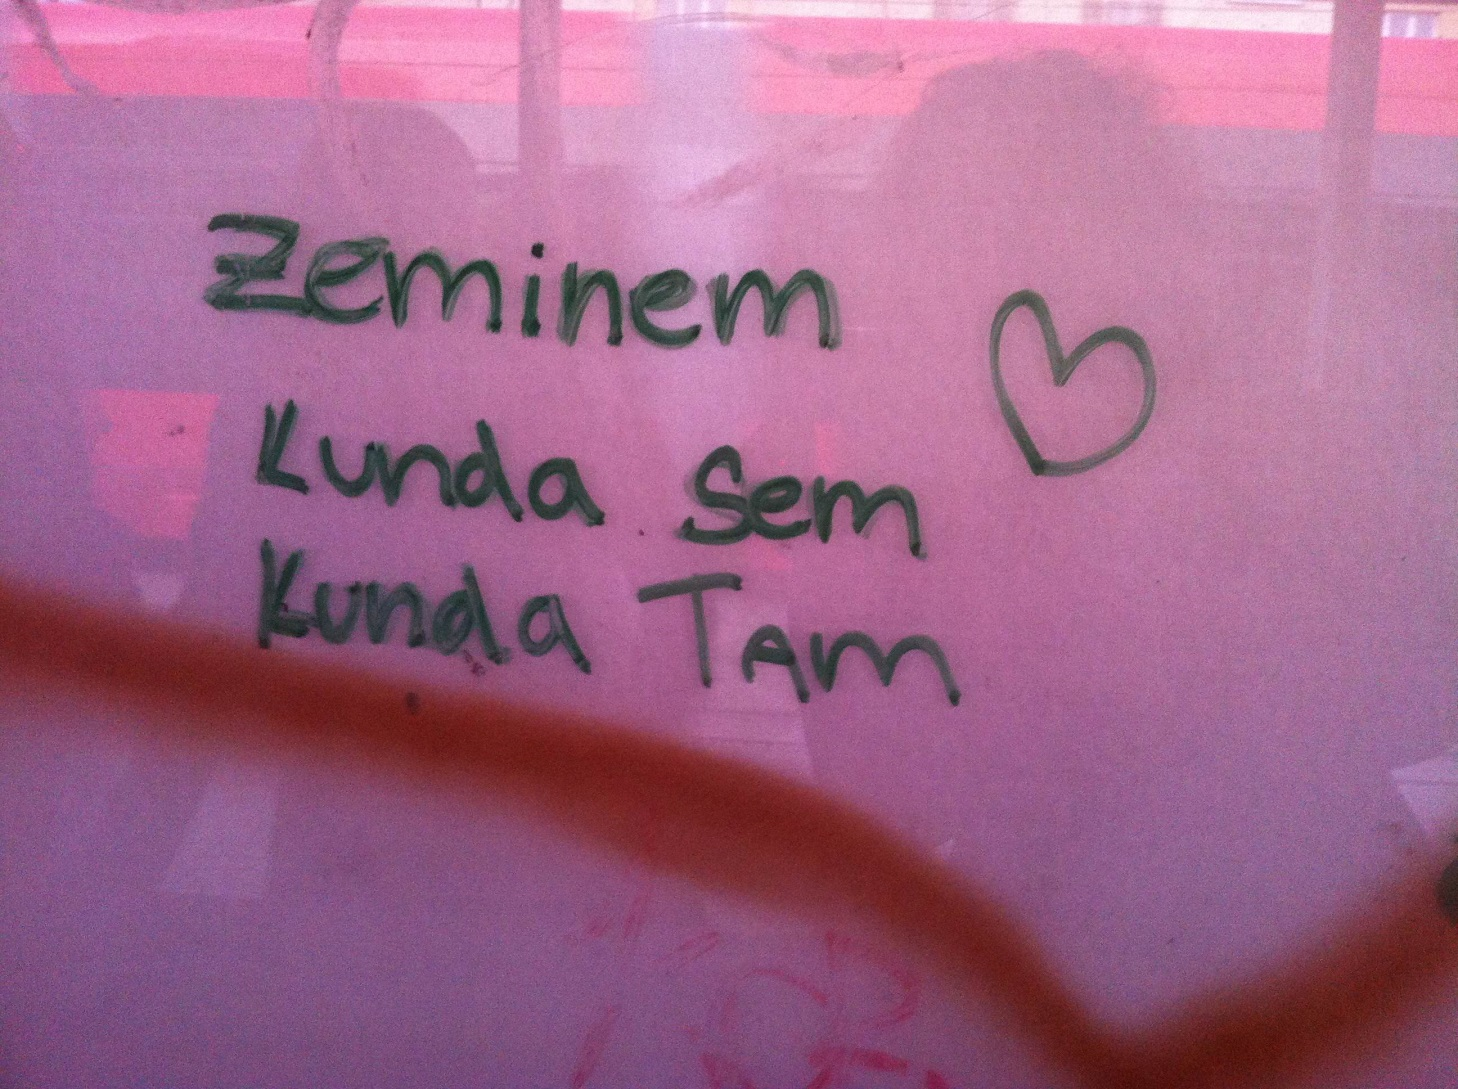 Zeminem
Kunda sem
Kunda Tam